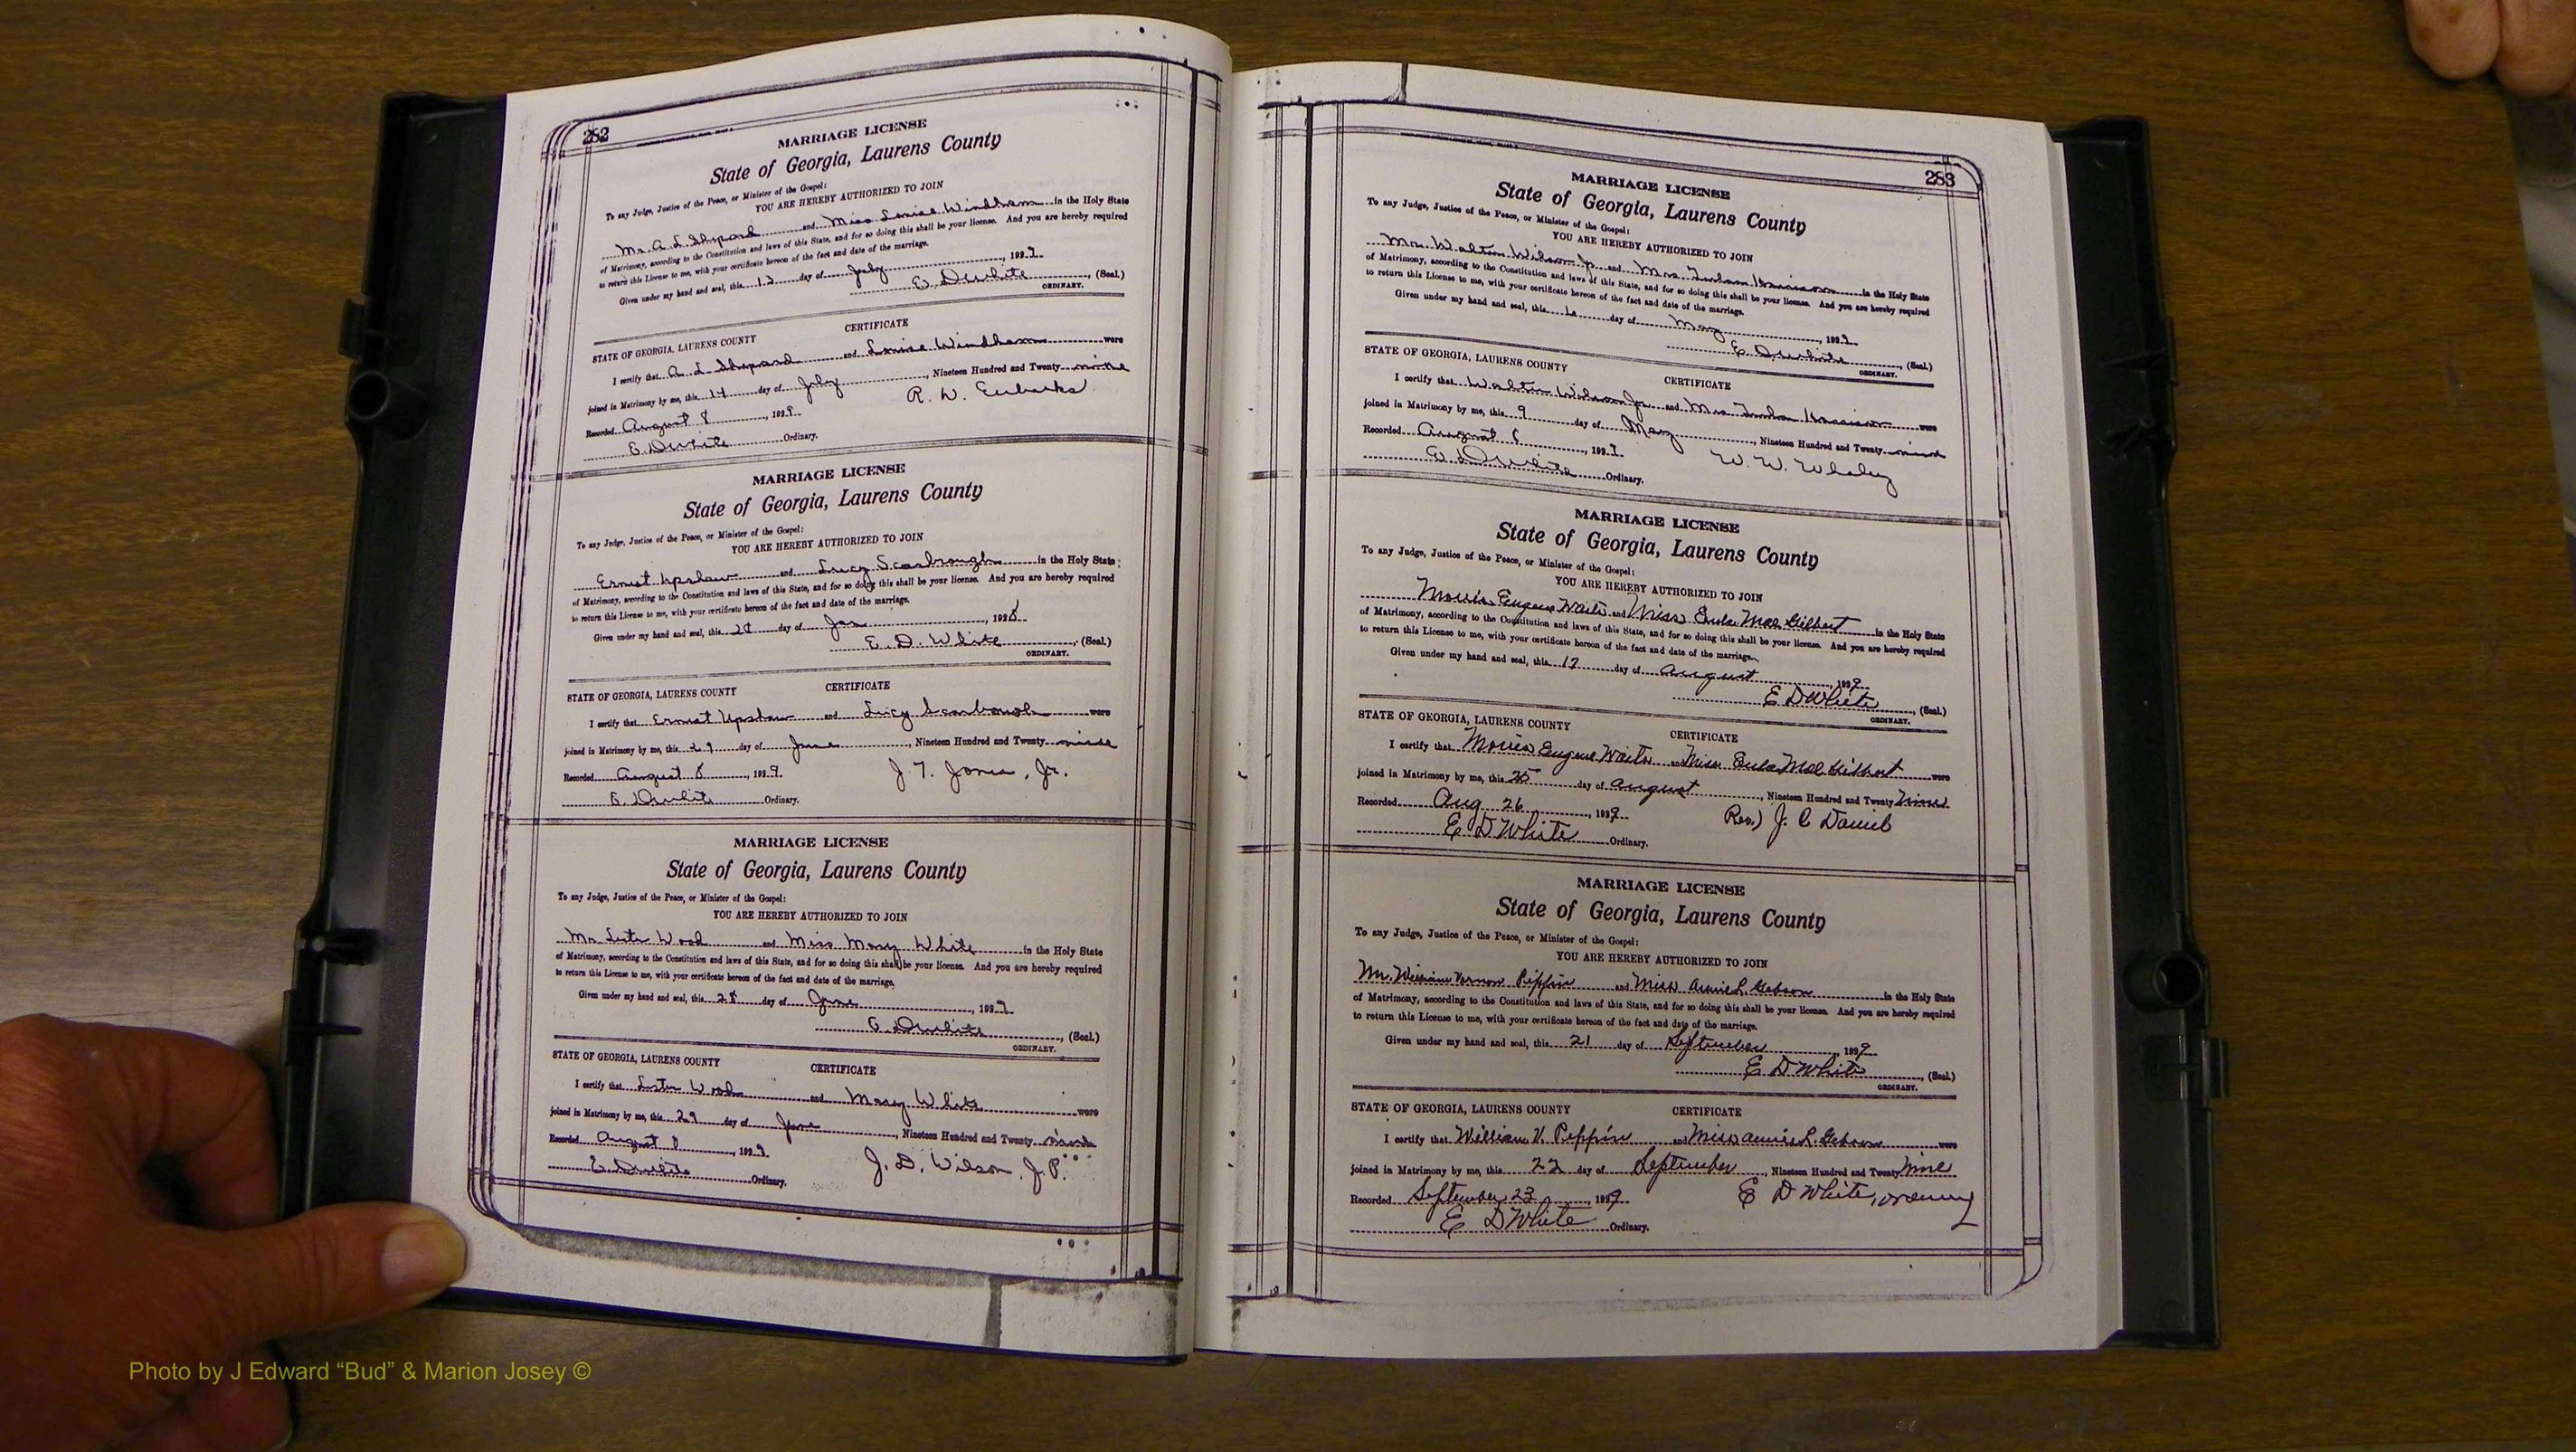 282
MARRIAGE LICENSE
State of Georgia, Laurens County
To any Judge, Justice of the Peace, or Minister of the Gospel:
YOU ARE HEREBY AUTHORIZED TO JOIN
Mr. A L Shepard and Miss Louise Windham in the Holy State
of Matrimony, according to the Constitution and laws of this State, and for so doing this shall be your license. And you are hereby required
to return this License to me, with your certificate hereon of the fact and date of the marriage.
Given under my hand and seal, this 13 day of July, 1929
E. D White, (Seal.)
ORDINARY.
CERTIFICATE
STATE OF GEORGIA, LAURENS COUNTY
I certify that A. L. Shepard and Louise Windham were
joined in Matrimony by me, this 14 day of July, Nineteen Hundred and Twenty nine
Recorded August 8, 1929. R. W. Eubanks
E. D White Ordinary.
MARRIAGE LICENSE
State of Georgia, Laurens County
To any Judge, Justice of the Peace, or Minister of the Gospel:
YOU ARE HEREBY AUTHORIZED TO JOIN
Ernest Upshaw and Lucy Scarbrough in the Holy State
of Matrimony, according to the Constitution and laws of this State, and for so doing this shall be your license. And you are hereby required
to return this License to me, with your certificate hereon of the fact and date of the marriage.
Given under my hand and seal, this 28 day of Jan, 192
E. D. White, (Seal.)
ORDINARY.
CERTIFICATE
STATE OF GEORGIA, LAURENS COUNTY
I certify that Ernest Upshaw and Lucy Scarbrough were
joined in Matrimony by me, this 29 day of June, Nineteen Hundred and Twenty nine
Recorded August 8, 1929. J. T. Jones, Jr.
E. D White Ordinary.
MARRIAGE LICENSE
State of Georgia, Laurens County
To any Judge, Justice of the Peace, or Minister of the Gospel:
YOU ARE HEREBY AUTHORIZED TO JOIN
Mr Lester Wood and Miss Mary White in the Holy State
of Matrimony, according to the Constitution and laws of this State, and for so doing this shall be your license. And you are hereby required
to return this License to me, with your certificate hereon of the fact and date of the marriage.
Given under my hand and seal, this 28 day of June, 1929
E. D White, (Seal.)
ORDINARY.
STATE OF GEORGIA, LAURENS COUNTY CERTIFICATE
I certify that Lester Wood and Mary White were
joined in Matrimony by me, this 29 day of June, Nineteen Hundred and Twenty nine
Recorded August 8, 1929. J. D. Wilson, J. P.
E. D White Ordinary.
283
MARRIAGE LICENSE
State of Georgia, Laurens County
To any Judge, Justice of the Peace, or Minister of the Gospel:
YOU ARE HEREBY AUTHORIZED TO JOIN
Mr. Walter Wilson Jr. and Mrs in the Holy State
of Matrimony, according to the Constitution and laws of this State, and for so doing this shall be your license. And you are hereby required
to return this License to me, with your certificate hereon of the fact and date of the marriage.
Given under my hand and seal, this day of May, 1929
E. D White, (Seal.)
ORDINARY.
STATE OF GEORGIA, LAURENS COUNTY CERTIFICATE
I certify that Walter Wilson Jr. and Mrs were
joined in Matrimony by me, this 9 day of May, Nineteen Hundred and Twenty nine
Recorded August 8, 1929. W. W. Whaley
E. D White Ordinary.
MARRIAGE LICENSE
State of Georgia, Laurens County
To any Judge, Justice of the Peace, or Minister of the Gospel:
YOU ARE HEREBY AUTHORIZED TO JOIN
Morris Eugene Waits and Miss Eula Mae Gilbert in the Holy State
of Matrimony, according to the Constitution and laws of this State, and for so doing this shall be your license. And you are hereby required
to return this License to me, with your certificate hereon of the fact and date of the marriage.
Given under my hand and seal, this 17 day of August, 1929
E D White, (Seal.)
ORDINARY.
STATE OF GEORGIA, LAURENS COUNTY CERTIFICATE
I certify that Morris Eugene Waits and Miss Eula Mae Gilbert were
joined in Matrimony by me, this 25 day of August, Nineteen Hundred and Twenty Nine
Recorded Aug 26, 1929. Rev.) J. C Daniel
E D White Ordinary.
MARRIAGE LICENSE
State of Georgia, Laurens County
To any Judge, Justice of the Peace, or Minister of the Gospel:
YOU ARE HEREBY AUTHORIZED TO JOIN
Mr. William Vernon Peppin and Miss Annie L. in the Holy State
of Matrimony, according to the Constitution and laws of this State, and for so doing this shall be your license. And you are hereby required
to return this License to me, with your certificate hereon of the fact and date of the marriage.
Given under my hand and seal, this 21 day of September, 1929
E D White, (Seal.)
ORDINARY.
STATE OF GEORGIA, LAURENS COUNTY CERTIFICATE
I certify that William V. Peppin and Miss Annie L. were
joined in Matrimony by me, this 22 day of September, Nineteen Hundred and Twenty Nine
Recorded September 23, 1929. E D White, Ordinary
E D White Ordinary.
Photo by J Edward “Bud” & Marion Josey ©